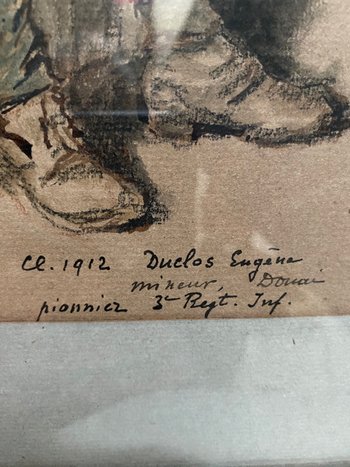 Cl. 1912 Duclos Eugène
mineur, Douai
pionnier 3e Regt. Inf.